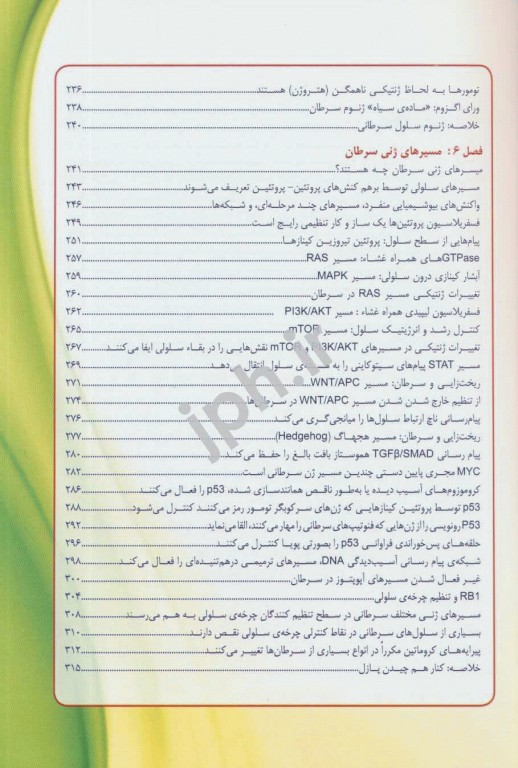 تومورها به لحاظ ژنتیکی ناهمگن (هتروژن) هستند ۲۳۶
ورای اگزوم: «ماده‌ی سیاه» ژنوم سرطان ۲۳۸
خلاصه: ژنوم سلول سرطانی ۲۴۰
فصل ۶: مسیرهای ژنی سرطان
میسرهای ژنی سرطان چه هستند؟ ۲۴۱
مسیرهای سلولی توسط برهم کنش‌های پروتئین- پروتئین تعریف می‌شوند ۲۴۳
واکنش‌های بیوشیمیایی منفرد، مسیرهای چند مرحله‌ای، و شبکه‌ها ۲۴۶
فسفریلاسیون پروتئین‌ها یک ساز و کار تنظیمی رایج است ۲۴۹
پیام‌هایی از سطح سلول: پروتئین تیروزین کینازها ۲۵۱
GTPaseهای همراه غشاء: مسیر RAS ۲۵۷
آبشار کینازی درون سلولی: مسیر MAPK ۲۵۹
تغییرات ژنتیکی مسیر RAS در سرطان ۲۶۰
فسفریلاسیون لیپیدی همراه غشاء : مسیر PI3K/AKT ۲۶۲
کنترل رشد و انرژیتیک سلول: مسیر mTOR ۲۶۵
تغییرات ژنتیکی در مسیرهای PI3K/AKT و mTOR نقش‌هایی را در بقاء سلولی ایفا می‌کنند ۲۶۷
مسیر STAT پیام‌های سیتوکاینی را به سلول انتقال دهد ۲۶۹
ریخت‌زایی و سرطان: مسیر WNT/APC ۲۷۱
از تنظیم خارج شدن شدن مسیر WNT/APC در سرطان‌ها ۲۷۴
پیام‌رسانی ناچ ارتباط سلول‌ها را میانجی‌گری می‌کند ۲۷۶
ریخت‌زایی و سرطان: مسیر هجهاگ (Hedgehog) ۲۷۷
پیام رسانی TGFβ/SMAD هموستاز بافت بالغ را حفظ می‌کند ۲۸۰
MYC مجری پایین دستی چندین مسیر ژن سرطانی است ۲۸۲
کروموزوم‌های آسیب دیده یا به‌طور ناقص همانندسازی شده، p53 را فعال می‌کنند ۲۸۶
p53 توسط پروتئین کینازهایی که ژن‌های سرکوبگر تومور رمز می‌کنند کنترل می‌شود ۲۸۸
P53 رونویسی را از ژن‌هایی که فنوتیپ‌های سرطانی را مهار می‌کنند، القا می‌نماید ۲۹۲
حلقه‌های پس‌خوراندی فراوانی p53 را بصورتی پویا کنترل می‌کنند ۲۹۶
شبکه‌ی پیام رسانی آسیب‌دیدگی DNA، مسیرهای ترمیمی درهم‌تنیده‌ای را فعال می‌کند ۲۹۸
غیر فعال شدن مسیرهای آپوپتوز در سرطان ۳۰۰
RB1 و تنظیم چرخه‌ی سلولی ۳۰۴
مسیرهای ژنی مختلف سرطانی در سطح تنظیم کنندگان چرخه‌ی سلولی به هم می‌رسند ۳۰۸
بسیاری از سلول‌های سرطانی در نقاط کنترلی چرخه‌ی سلولی نقص دارند ۳۱۰
پیرایه‌های کروماتین مکرراً در انواع بسیاری از سرطان‌ها تغییر می‌کنند ۳۱۲
خلاصه: کنار هم چیدن پازل ۳۱۵
jph.ir